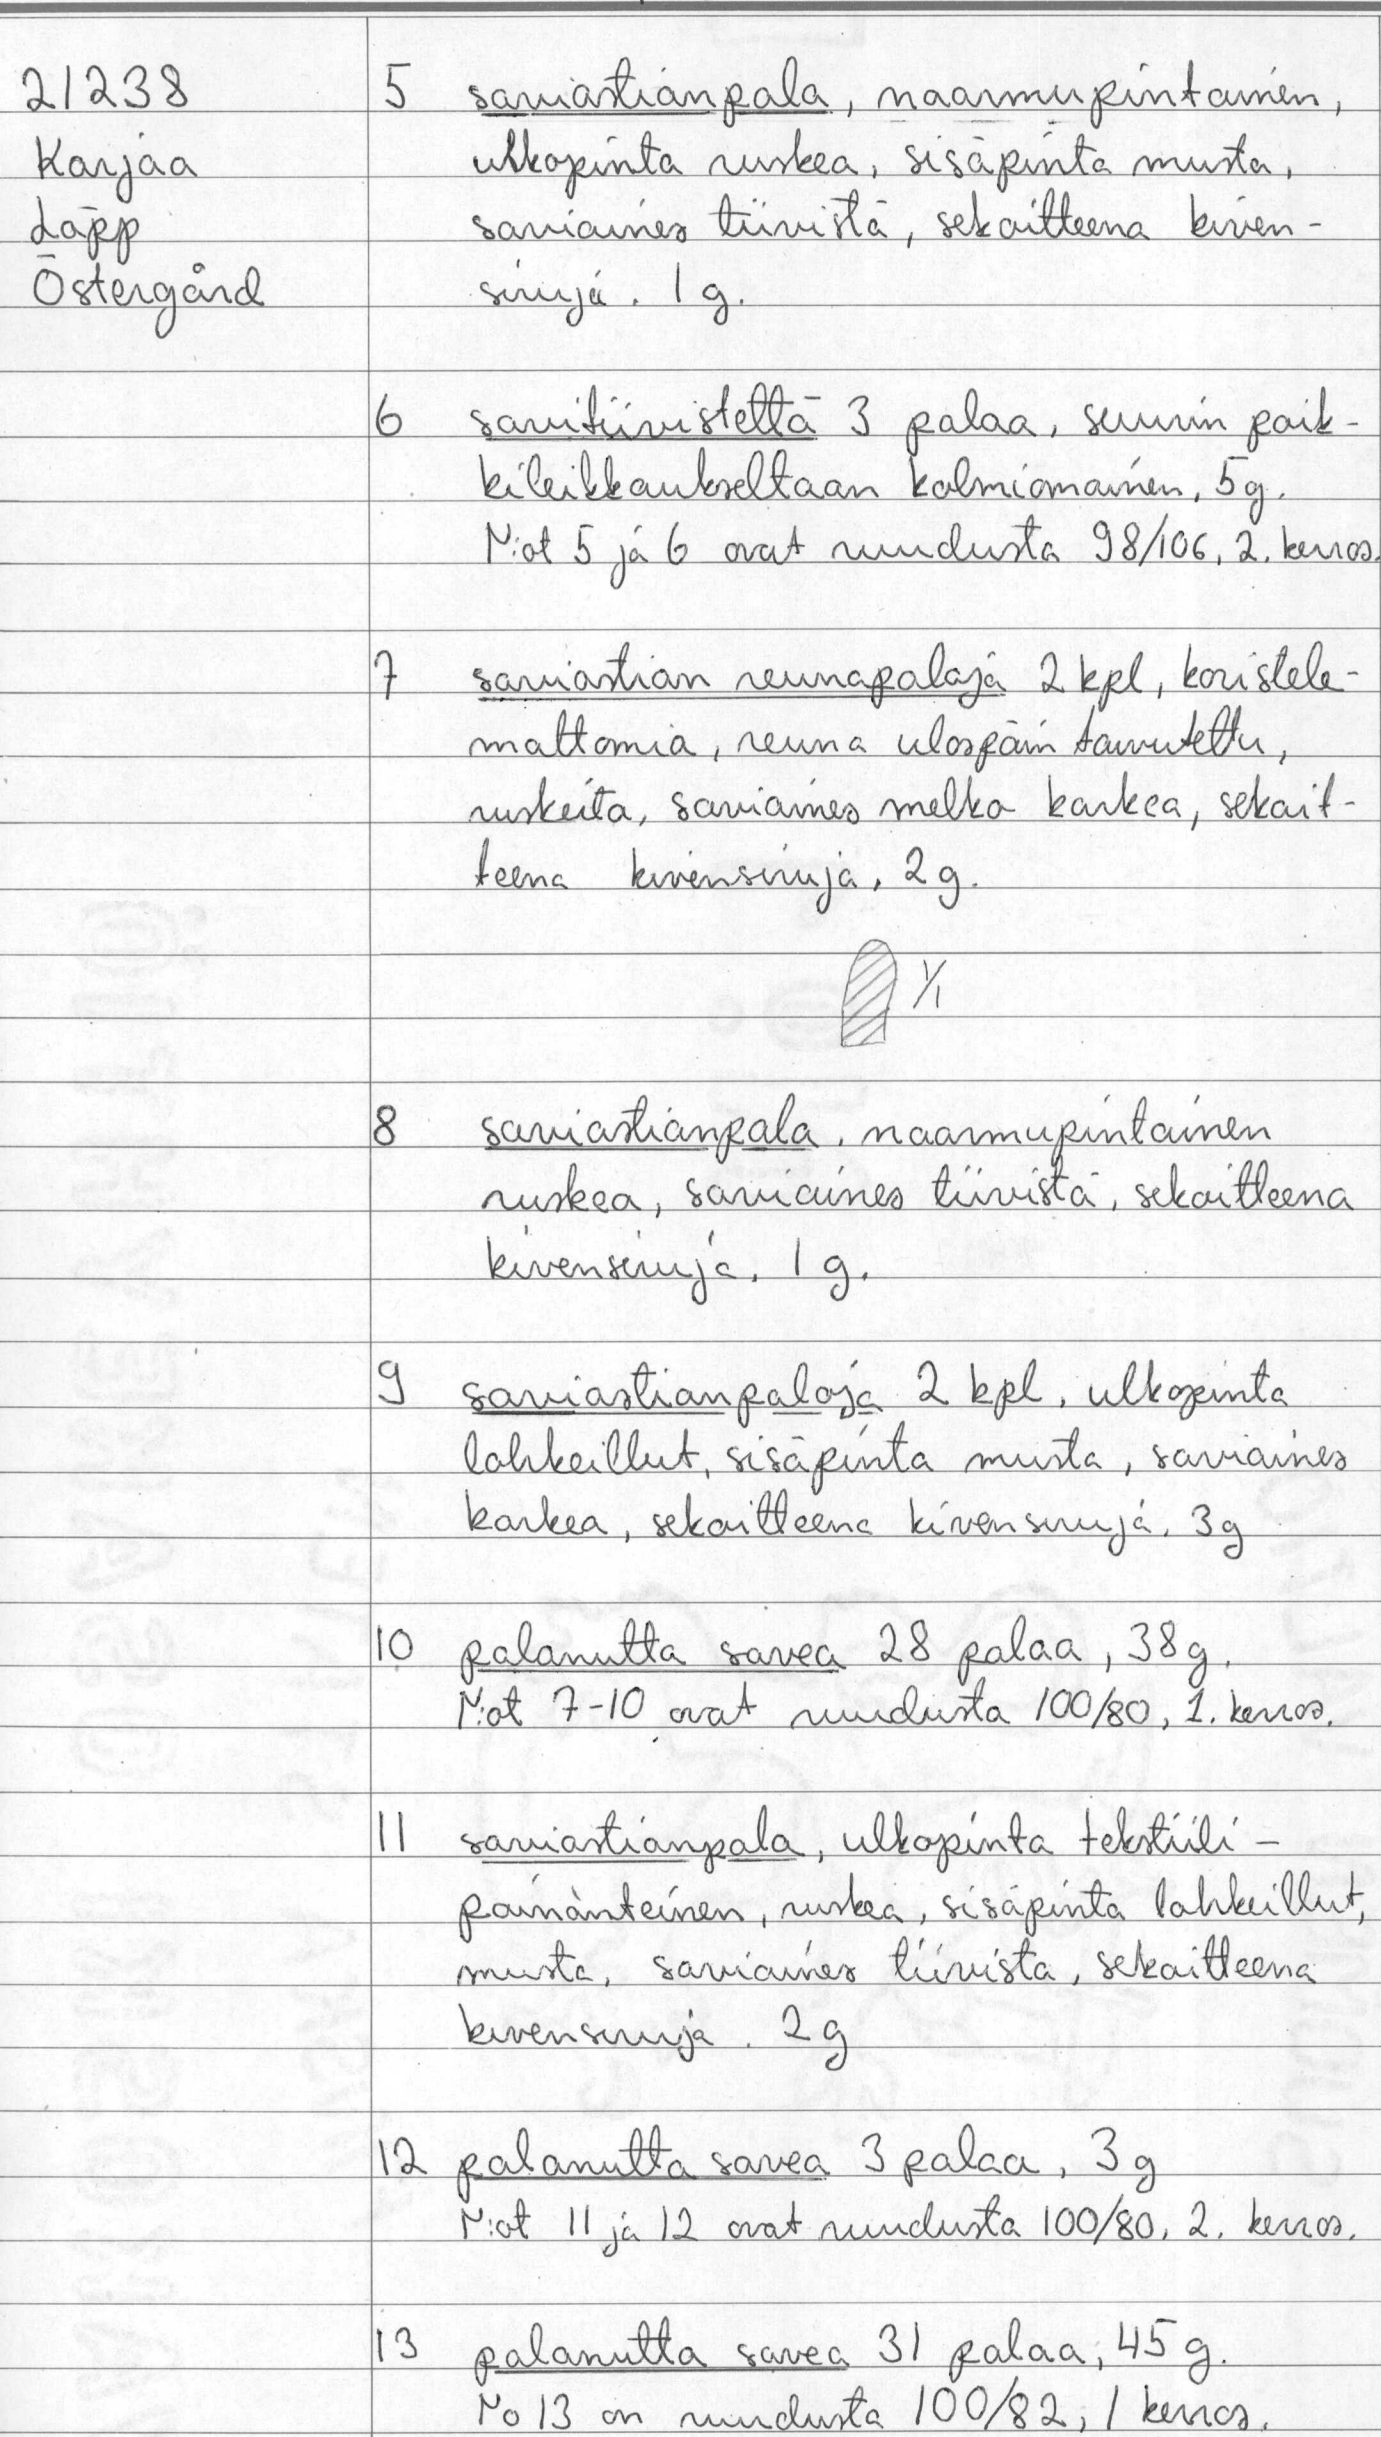 21238
Karjaa
Läpp
Östergård
5 saviastianpala, naarmupintainen,
ulkopinta ruskea, sisäpinta musta,
saviaines tiivistä, sekoitteena kiven-
siruja. 1 g.
6 savitiivistettä 3 palaa, suurin poik-
kileikkaukseltaan kolmiomainen, 5g.
N:ot 5 ja 6 ovat ruudusta 98/106, 2. kerros.
7 saviastian reunapaloja 2 kpl, koristele-
mattomia, reuna ulospäin taivutettu,
ruskeita, saviaines melko karkea, sekoit-
teena kivensiruja, 2 g.
1/1
8 saviastianpala, naarmupintainen
ruskea, saviaines tiivistä, sekoitteena
kivensiruja, 1 g.
9 saviastianpaloja 2 kpl, ulkopinta
lohkeillut, sisäpinta musta, saviaines
karkea, sekoitteena kivensiruja, 3g
10 palanutta savea 28 palaa, 38g.
N:ot 7-10 ovat ruudusta 100/80, 1. kerros.
11 saviastianpala, ulkopinta tekstiili-
painanteinen, ruskea, sisäpinta lohkeillut,
musta, saviaines tiivistä, sekoitteena
kivensiruja. 2g
12 palanutta savea 3 palaa, 3g
N:ot 11 ja 12 ovat ruudusta 100/80, 2. kerros.
13 palanutta savea 31 palaa, 45 g.
No 13 on ruudusta 100/82, 1 kerros.